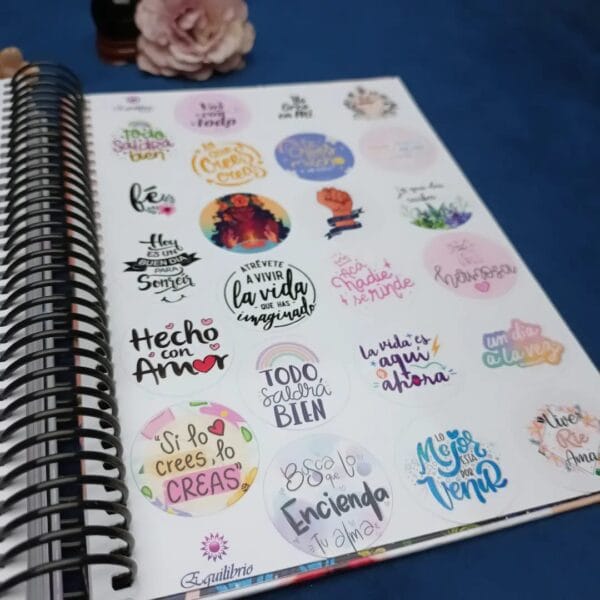 Vive
con
todo
Todo
saldrá
bien
Lo
que
Crees
creas
fé
Hoy
ES UN
BUEN DIA
PARA
Sonreir
ATRÉVETE
A VIVIR
la vida
QUE HAS
imaginado
Acá
Nadie
se rinde
Hecho
con
Amor
TODO
saldrá
BIEN
la vida es
aquí
y
ahora
un día
a la vez
"Si lo
crees, lo
CREAS"
Busca que lo
Encienda
Tu alma
LO
Mejor
ESTÁ
POR
VENIR
Vive
Ríe
Ama
Equilibrio